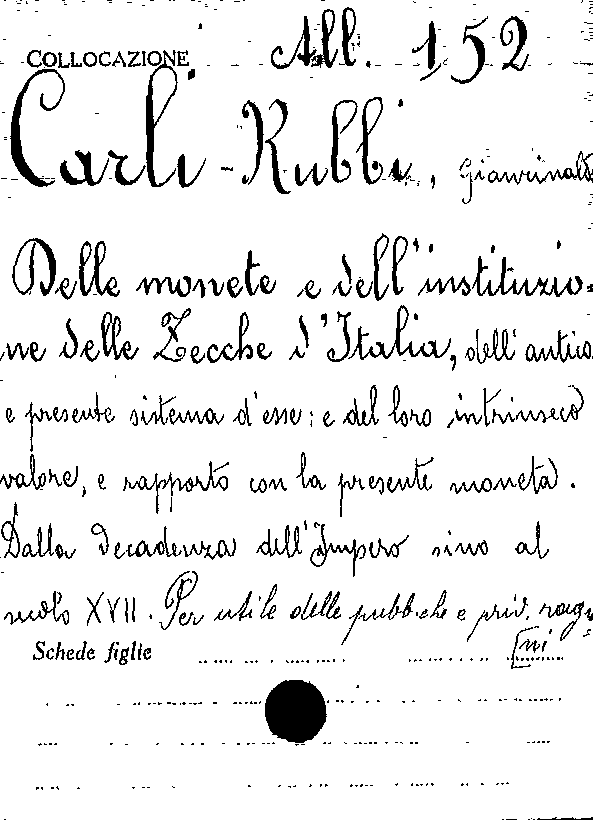 COLLOCAZIONE All. 152
Carli-Rubbi, Gianrinaldo
Delle monete e dell'instituzio-
ne delle Zecche d'Italia, dell'antico
e presente sistema d'esse: e del loro intrinseco
valore, e rapporto con la presente moneta.
Dalla decadenza dell'Impero sino al
secolo XVII. Per utile delle pubbliche e priv. ragio-
Schede figlie [ni